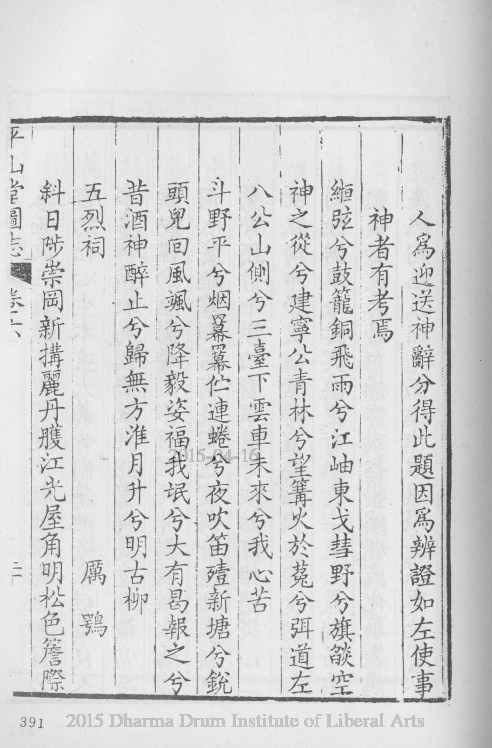 人爲迎送神辭分得此題因爲辨證如左使事
神者有考焉
緪弦兮鼓籠銅飛雨兮江岫東戈彗野兮旗燄空
神之從兮建寧公青林兮望篝火於菟兮弭道左
八公山側兮三臺下雲車未來兮我心苦
斗野平兮烟羃羃伫連蜷兮夜吹笛殪新塘兮銳
頭兕回風颯兮降毅姿福我氓兮大有曷報之兮
昔酒神醉止兮歸無方淮月升兮明古柳
五烈祠 厲鶚
斜日陟崇岡新搆麗丹雘江光屋角明松色簷際
平山堂圖志 卷六
391
2015 Dharma Drum Institute of Liberal Arts
2015-04-16